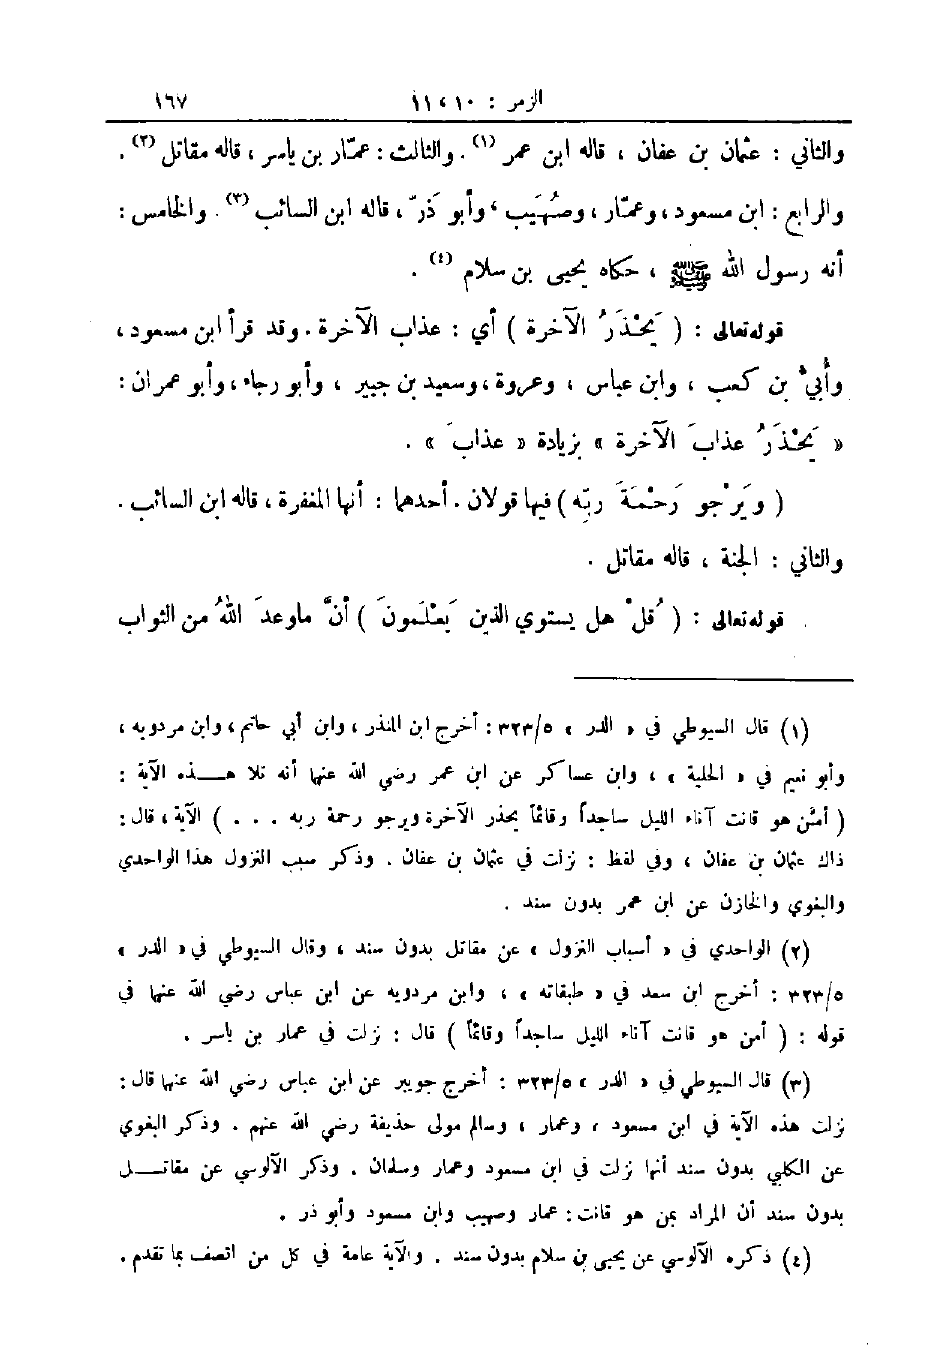 الزمر : ١٠ ، ١١ ١٦٧
والثاني : عثمان بن عفان ، قاله ابن عمر (١) . والثالث : عمّار بن ياسر ، قاله مقاتل (٢) .
والرابع : ابن مسعود ، وعمّار ، وصُهَيب ، وأبو ذَرّ ، قاله ابن السائب (٣) . والخامس :
أنه رسول الله ﷺ ، حكاه يحيى بن سلام (٤) .
قوله تعالى : ( يَحْذَرُ الآخرة ) أي : عذاب الآخرة . وقد قرأ ابن مسعود ،
وأُبيّ بن كعب ، وابن عباس ، وعروة ، وسعيد بن جبير ، وأبو رجاء ، وأبو عمران :
« يَحْذَرُ عذابَ الآخرة » بزيادة « عذابَ » .
( ويَرْجو رَحْمَةَ ربِّه ) فيها قولان . أحدهما : أنها المغفرة ، قاله ابن السائب .
والثاني : الجنة ، قاله مقاتل .
قوله تعالى : ( قُلْ هل يستوي الذين يَعْلَمونَ ) أنَّ ماوعدَ اللهُ من الثواب
(١) قال السيوطي في « الدر » ٣٢٣/٥ : أخرج ابن المنذر ، وابن أبي حاتم ، وابن مردويه ،
وأبو نعيم في « الحلية » ، وابن عساكر عن ابن عمر رضي الله عنهما أنه تلا هـذه الآية :
( أمَّن هو قانت آناء الليل ساجداً وقائماً يحذر الآخرة ويرجو رحمة ربه . . . ) الآية ، قال :
ذاك عثمان بن عفان ، وفي لفظ : نزلت في عثمان بن عفان . وذكر سبب النزول هذا الواحدي
والبغوي والخازن عن ابن عمر بدون سند .
(٢) الواحدي في « أسباب النزول » عن مقاتل بدون سند ، وقال السيوطي في « الدر »
٣٢٣/٥ : أخرج ابن سعد في « طبقاته » ، وابن مردويه عن ابن عباس رضي الله عنهما في
قوله : ( أمن هو قانت آناء الليل ساجداً وقائماً ) قال : نزلت في عمار بن ياسر .
(٣) قال السيوطي في « الدر » ٣٢٣/٥ : أخرج جويبر عن ابن عباس رضي الله عنهما قال :
نزلت هذه الآية في ابن مسعود ، وعمار ، وسالم مولى حذيفة رضي الله عنهم . وذكر البغوي
عن الكلبي بدون سند أنها نزلت في ابن مسعود وعمار وسلمان . وذكر الآلوسي عن مقاتـل
بدون سند أن المراد بمن هو قانت : عمار وصهيب وابن مسعود وأبو ذر .
(٤) ذكره الآلوسي عن يحيى بن سلام بدون سند . والآية عامة في كل من اتصف بما تقدم .